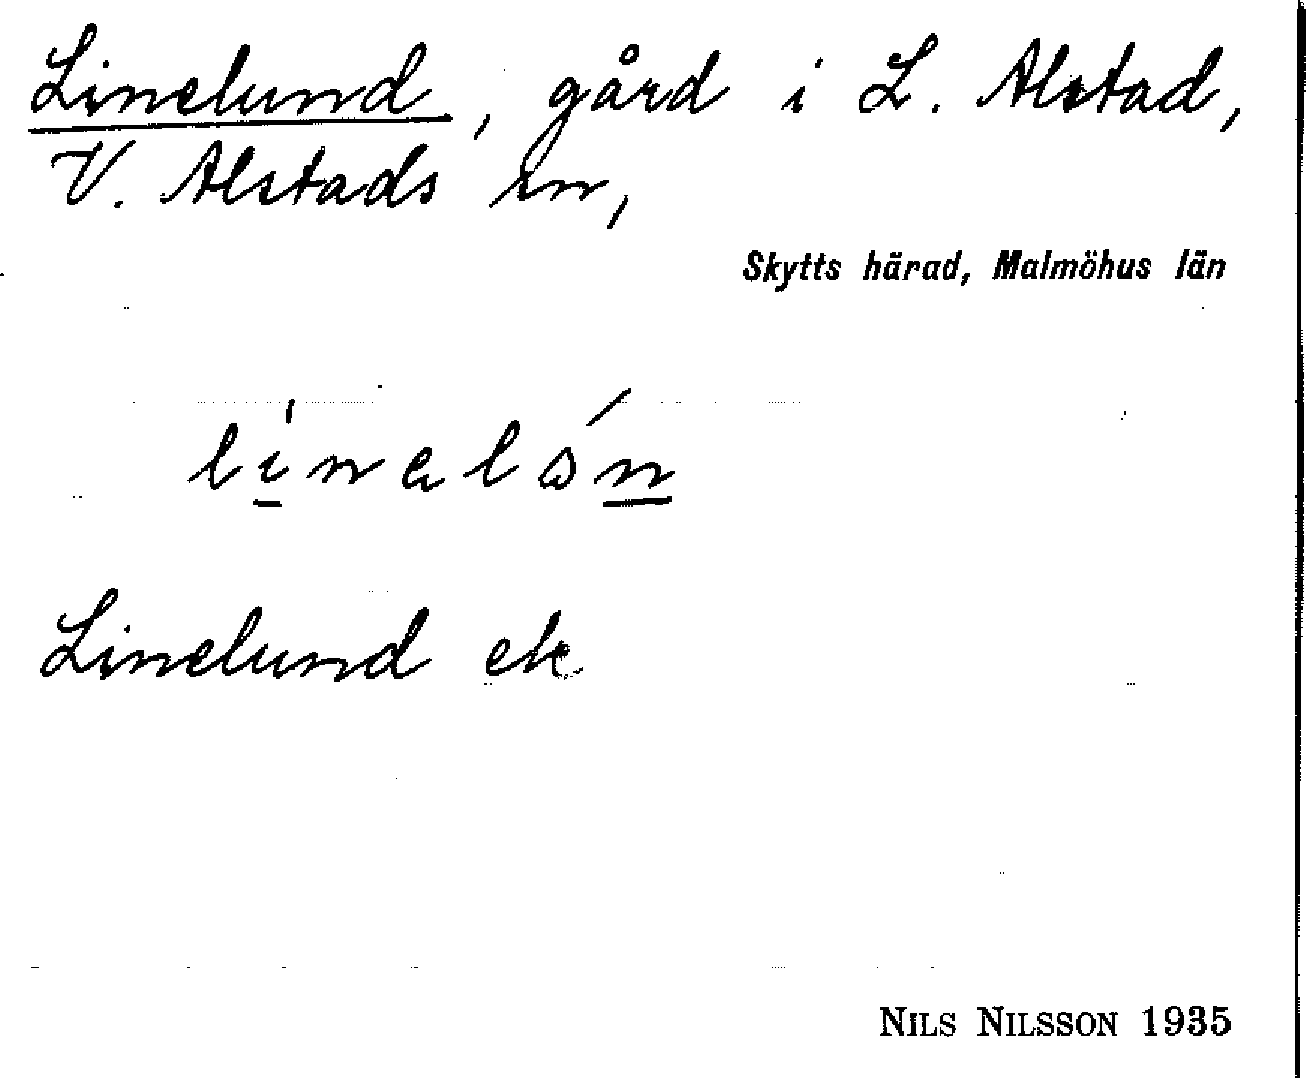 Linelund, gård i L. Alstad,
V. Alstads sn,
Skytts härad, Malmöhus län
Linelund ek
NILS NILSSON 1935